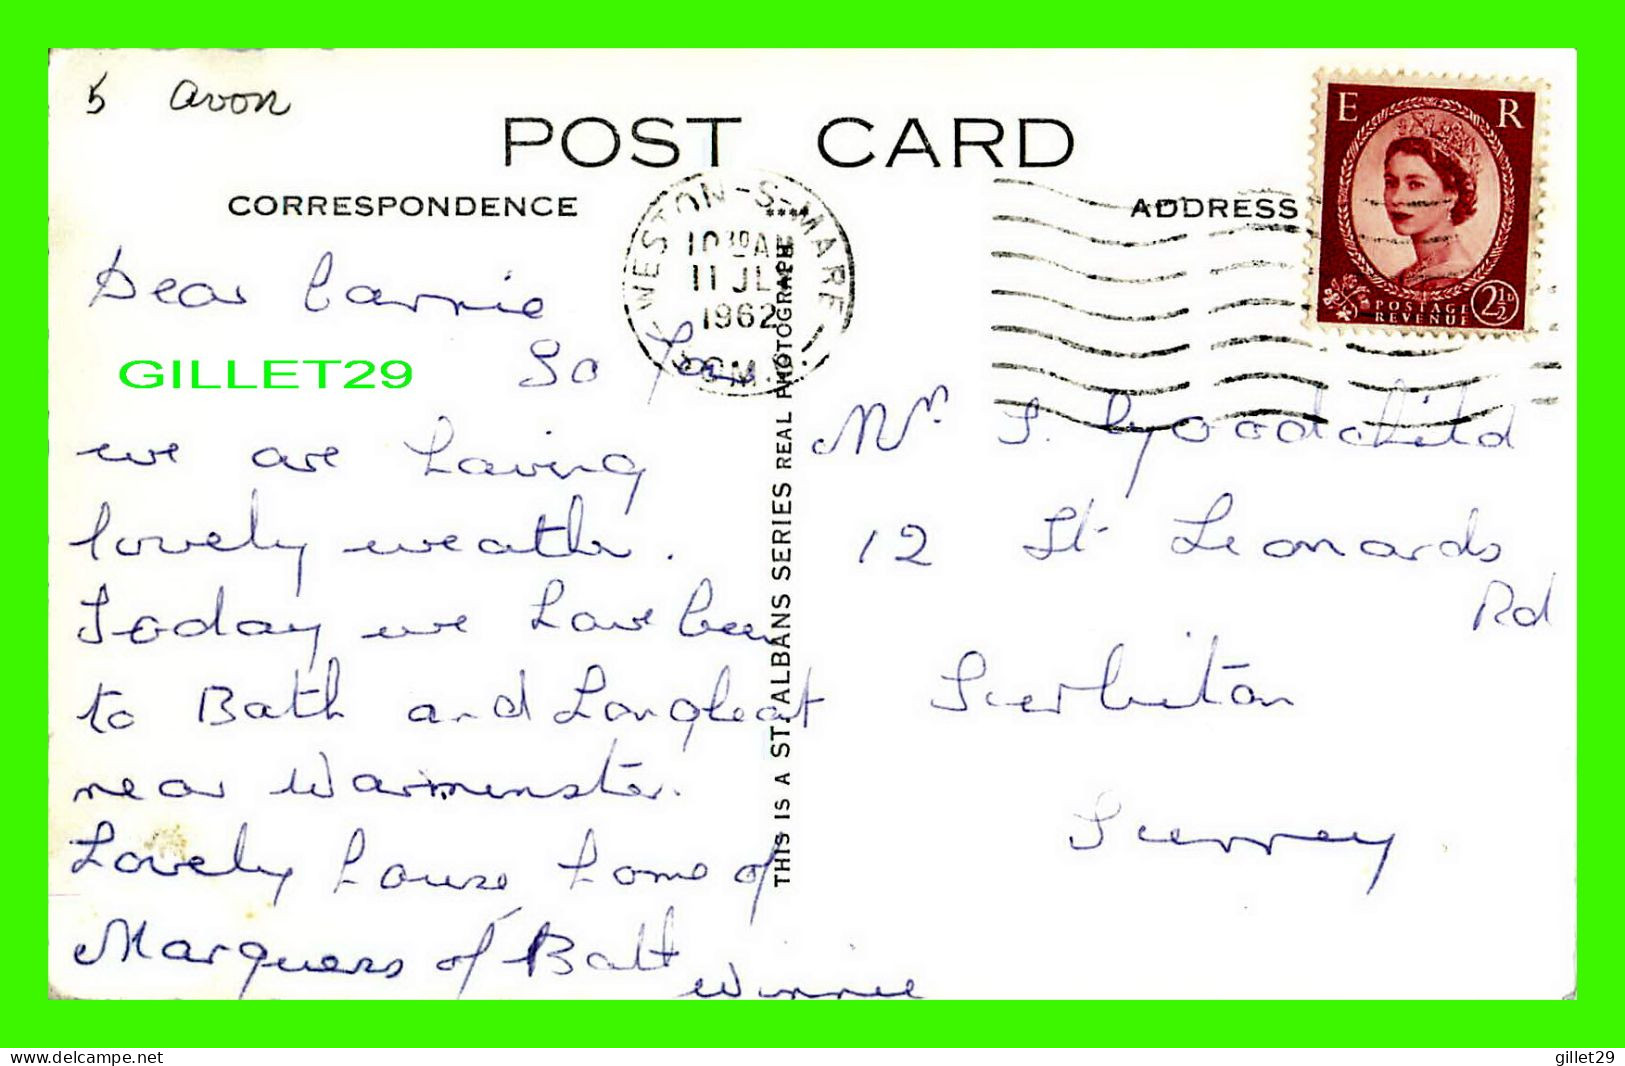 5 Avon
POST CARD
CORRESPONDENCE
ADDRESS
E R
POSTAGE
REVENUE
2½D
WESTON-S-MARE
10 30 AM
11 JL
1962
SOM.
GILLET29
THIS IS A ST. ALBANS SERIES REAL PHOTOGRAPH
Dear Carrie
So Far
we are having
lovely weather.
Today we have been
to Bath and Longleat
near Warminster.
Lovely house home of
Marquess of Batt
Winnie
Mrs. S. Goodchild
12 St Leonards
Rd
Surbiton
Surrey
www.delcampe.net
gillet29